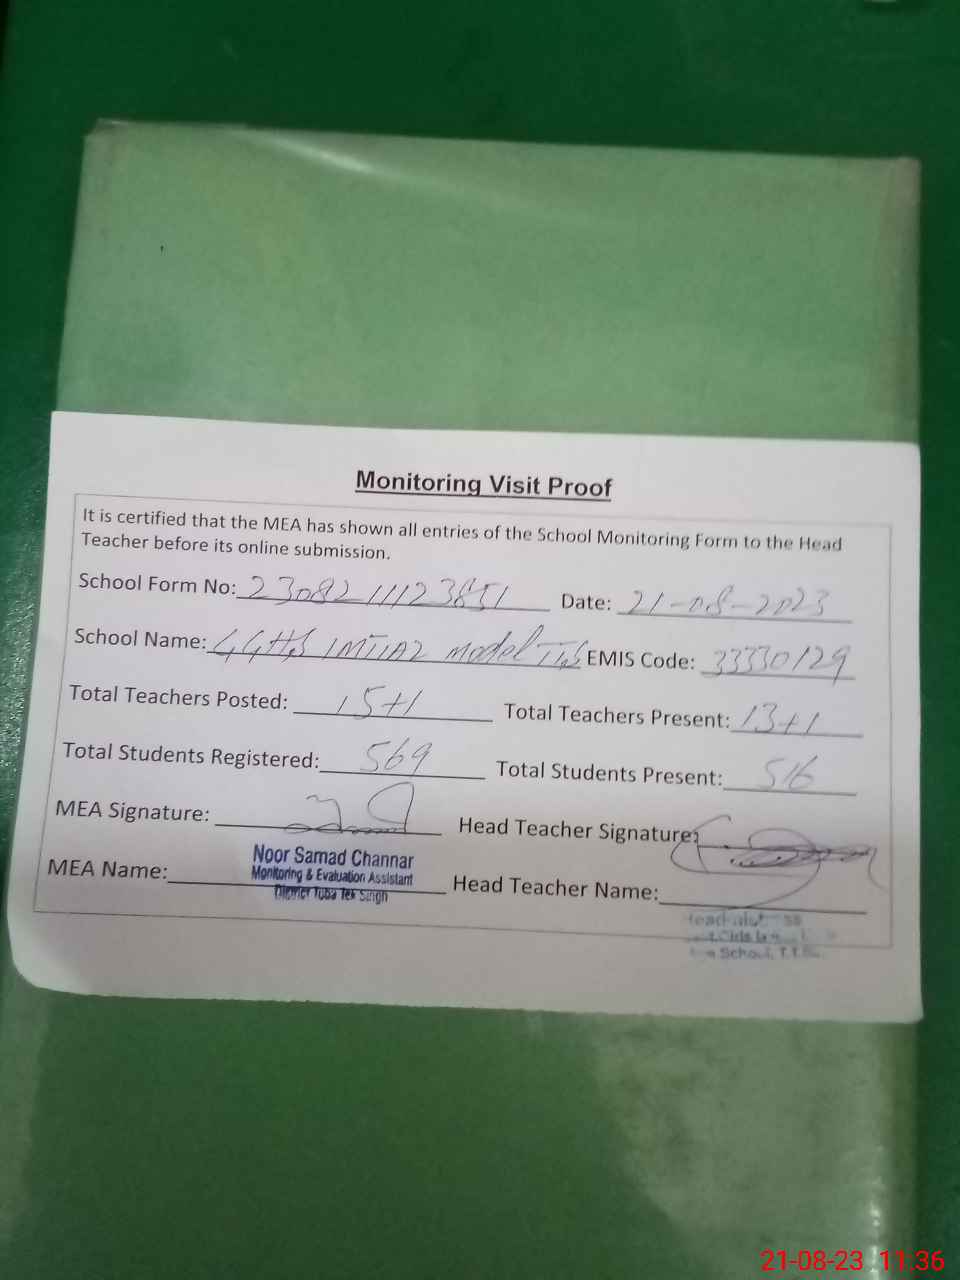 Monitoring Visit Proof
It is certified that the MEA has shown all entries of the School Monitoring Form to the Head
Teacher before its online submission.
School Form No: 2308211123851 Date: 21-08-2023
School Name: GGHS IMTIAZ Model TTS EMIS Code: 33330129
Total Teachers Posted: 15+1 Total Teachers Present: 13+1
Total Students Registered: 569 Total Students Present: 516
MEA Signature: Head Teacher Signature:
MEA Name: Noor Samad Channar
Monitoring & Evaluation Assistant
District Toba Tek Singh
Head Teacher Name:
School, T.T.
21-08-23 11:36